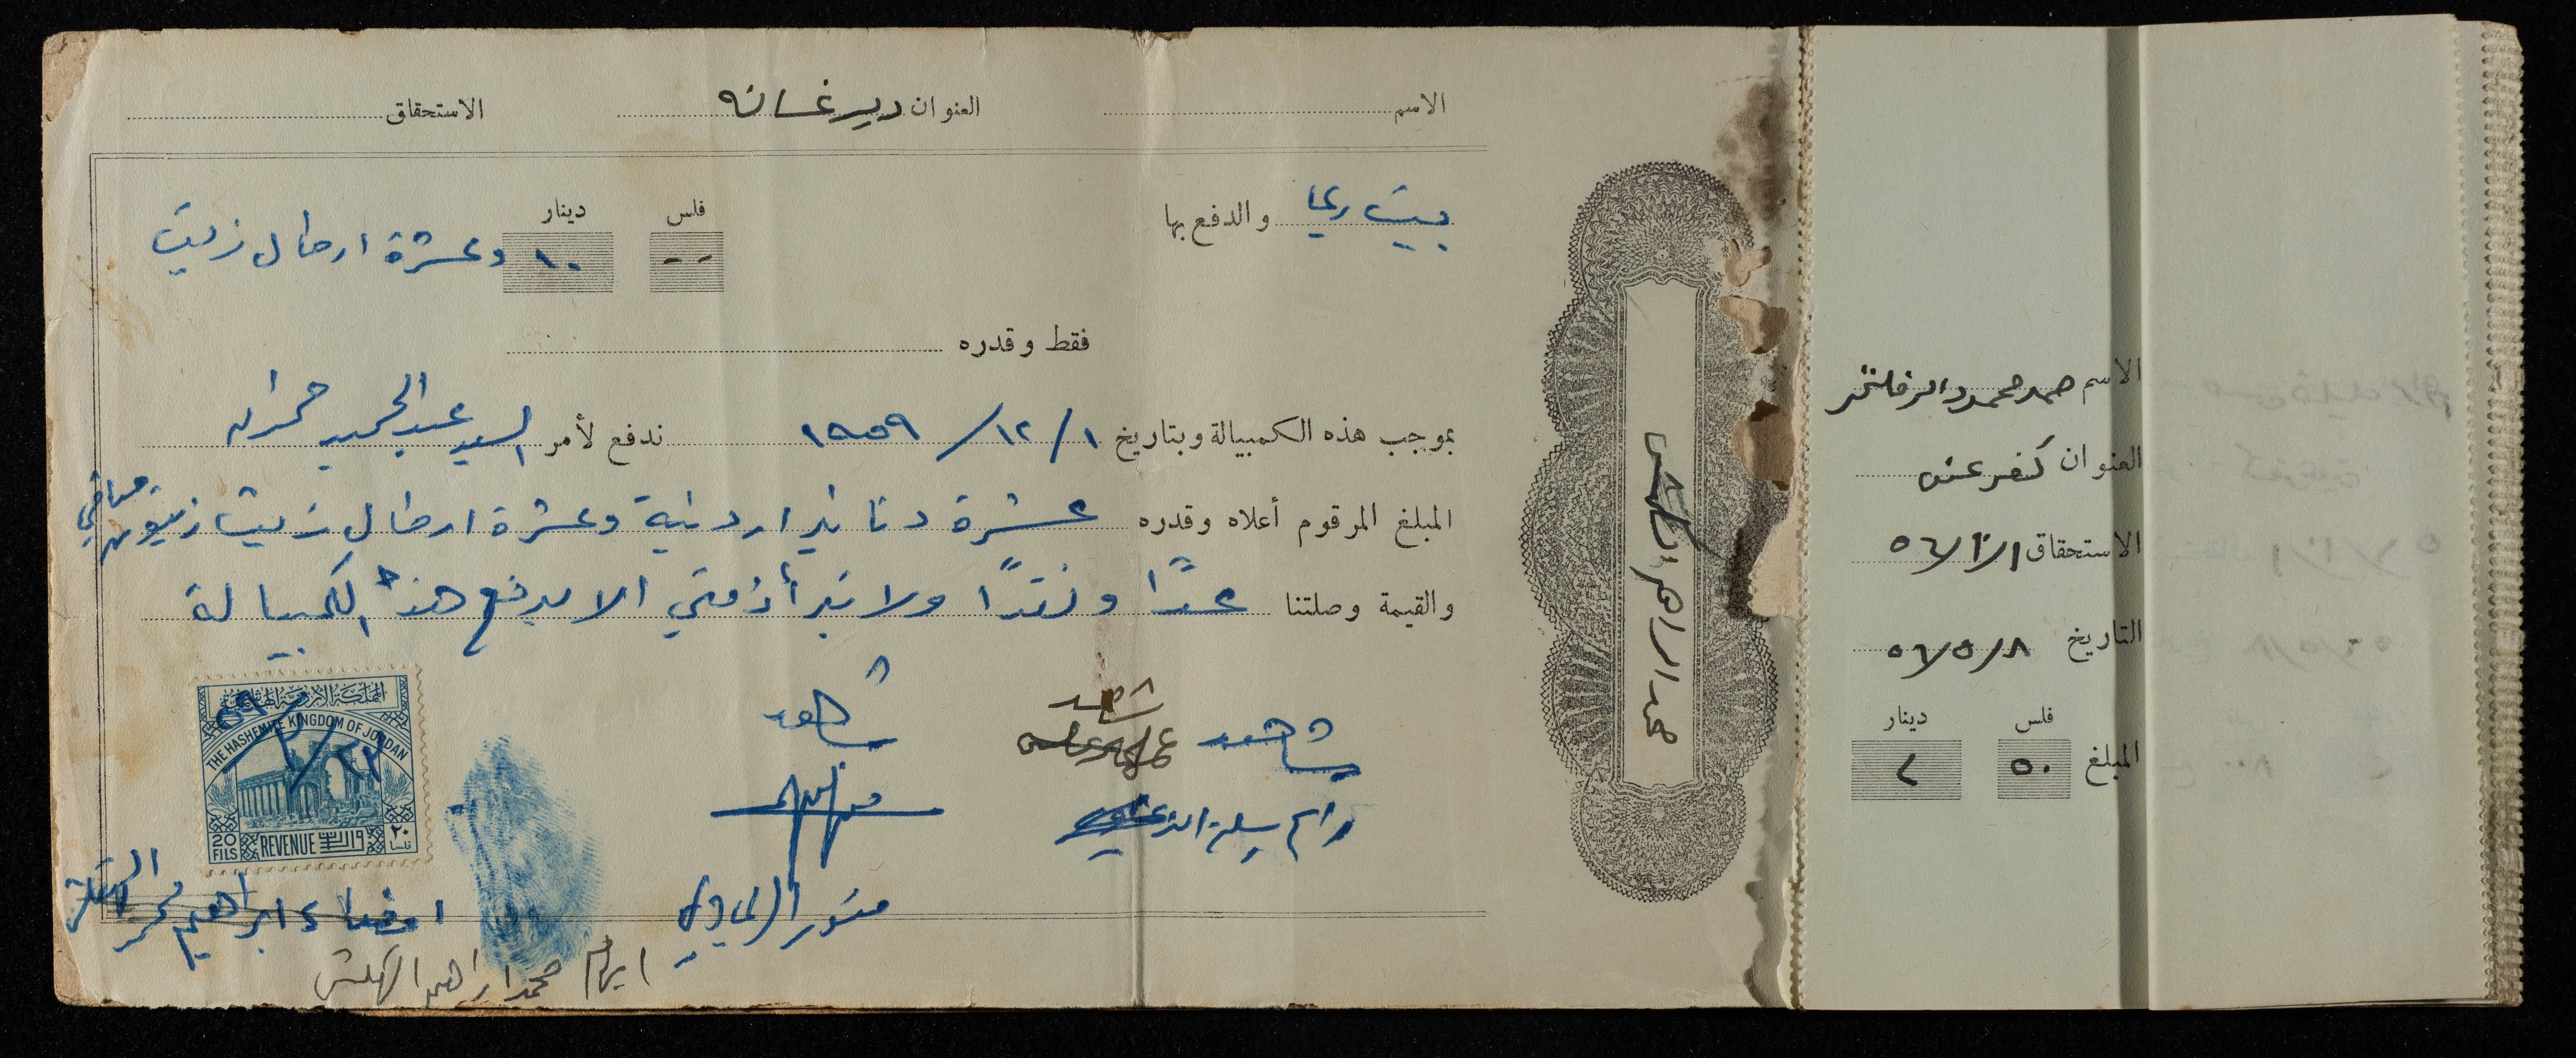 الاسم العنوان دير غسانه الاستحقاق
بيت ريما والدفع بها
فلس دينار
-- ١٠ وعشرة ارطال زيت
فقط وقدره
بموجب هذه الكمبيالة وبتاريخ ١/١٢/١٩٥٩ ندفع لأمر السيد عبد الحميد حمدان
المبلغ المرقوم أعلاه وقدره عشرة دنانير اردنية وعشرة ارطال زيت زيتون صافي
والقيمة وصلتنا عدًا ونقدًا ولا تبرأ ذمتي الا بدفع هذه الكمبيالة
شاهد شاهد شاهد
المملكة الأردنية الهاشمية
THE HASHEMITE KINGDOM OF JORDAN
20 FILS REVENUE ٢٠ فلسا
امضاء ابراهيم محمد
ابهام محمد ابراهيم
محمد ابراهيم
الاسم حمد محمود
العنوان كفر عين
الاستحقاق
التاريخ ٥٦/٥/٨
فلس دينار
المبلغ ٥٠ ٢